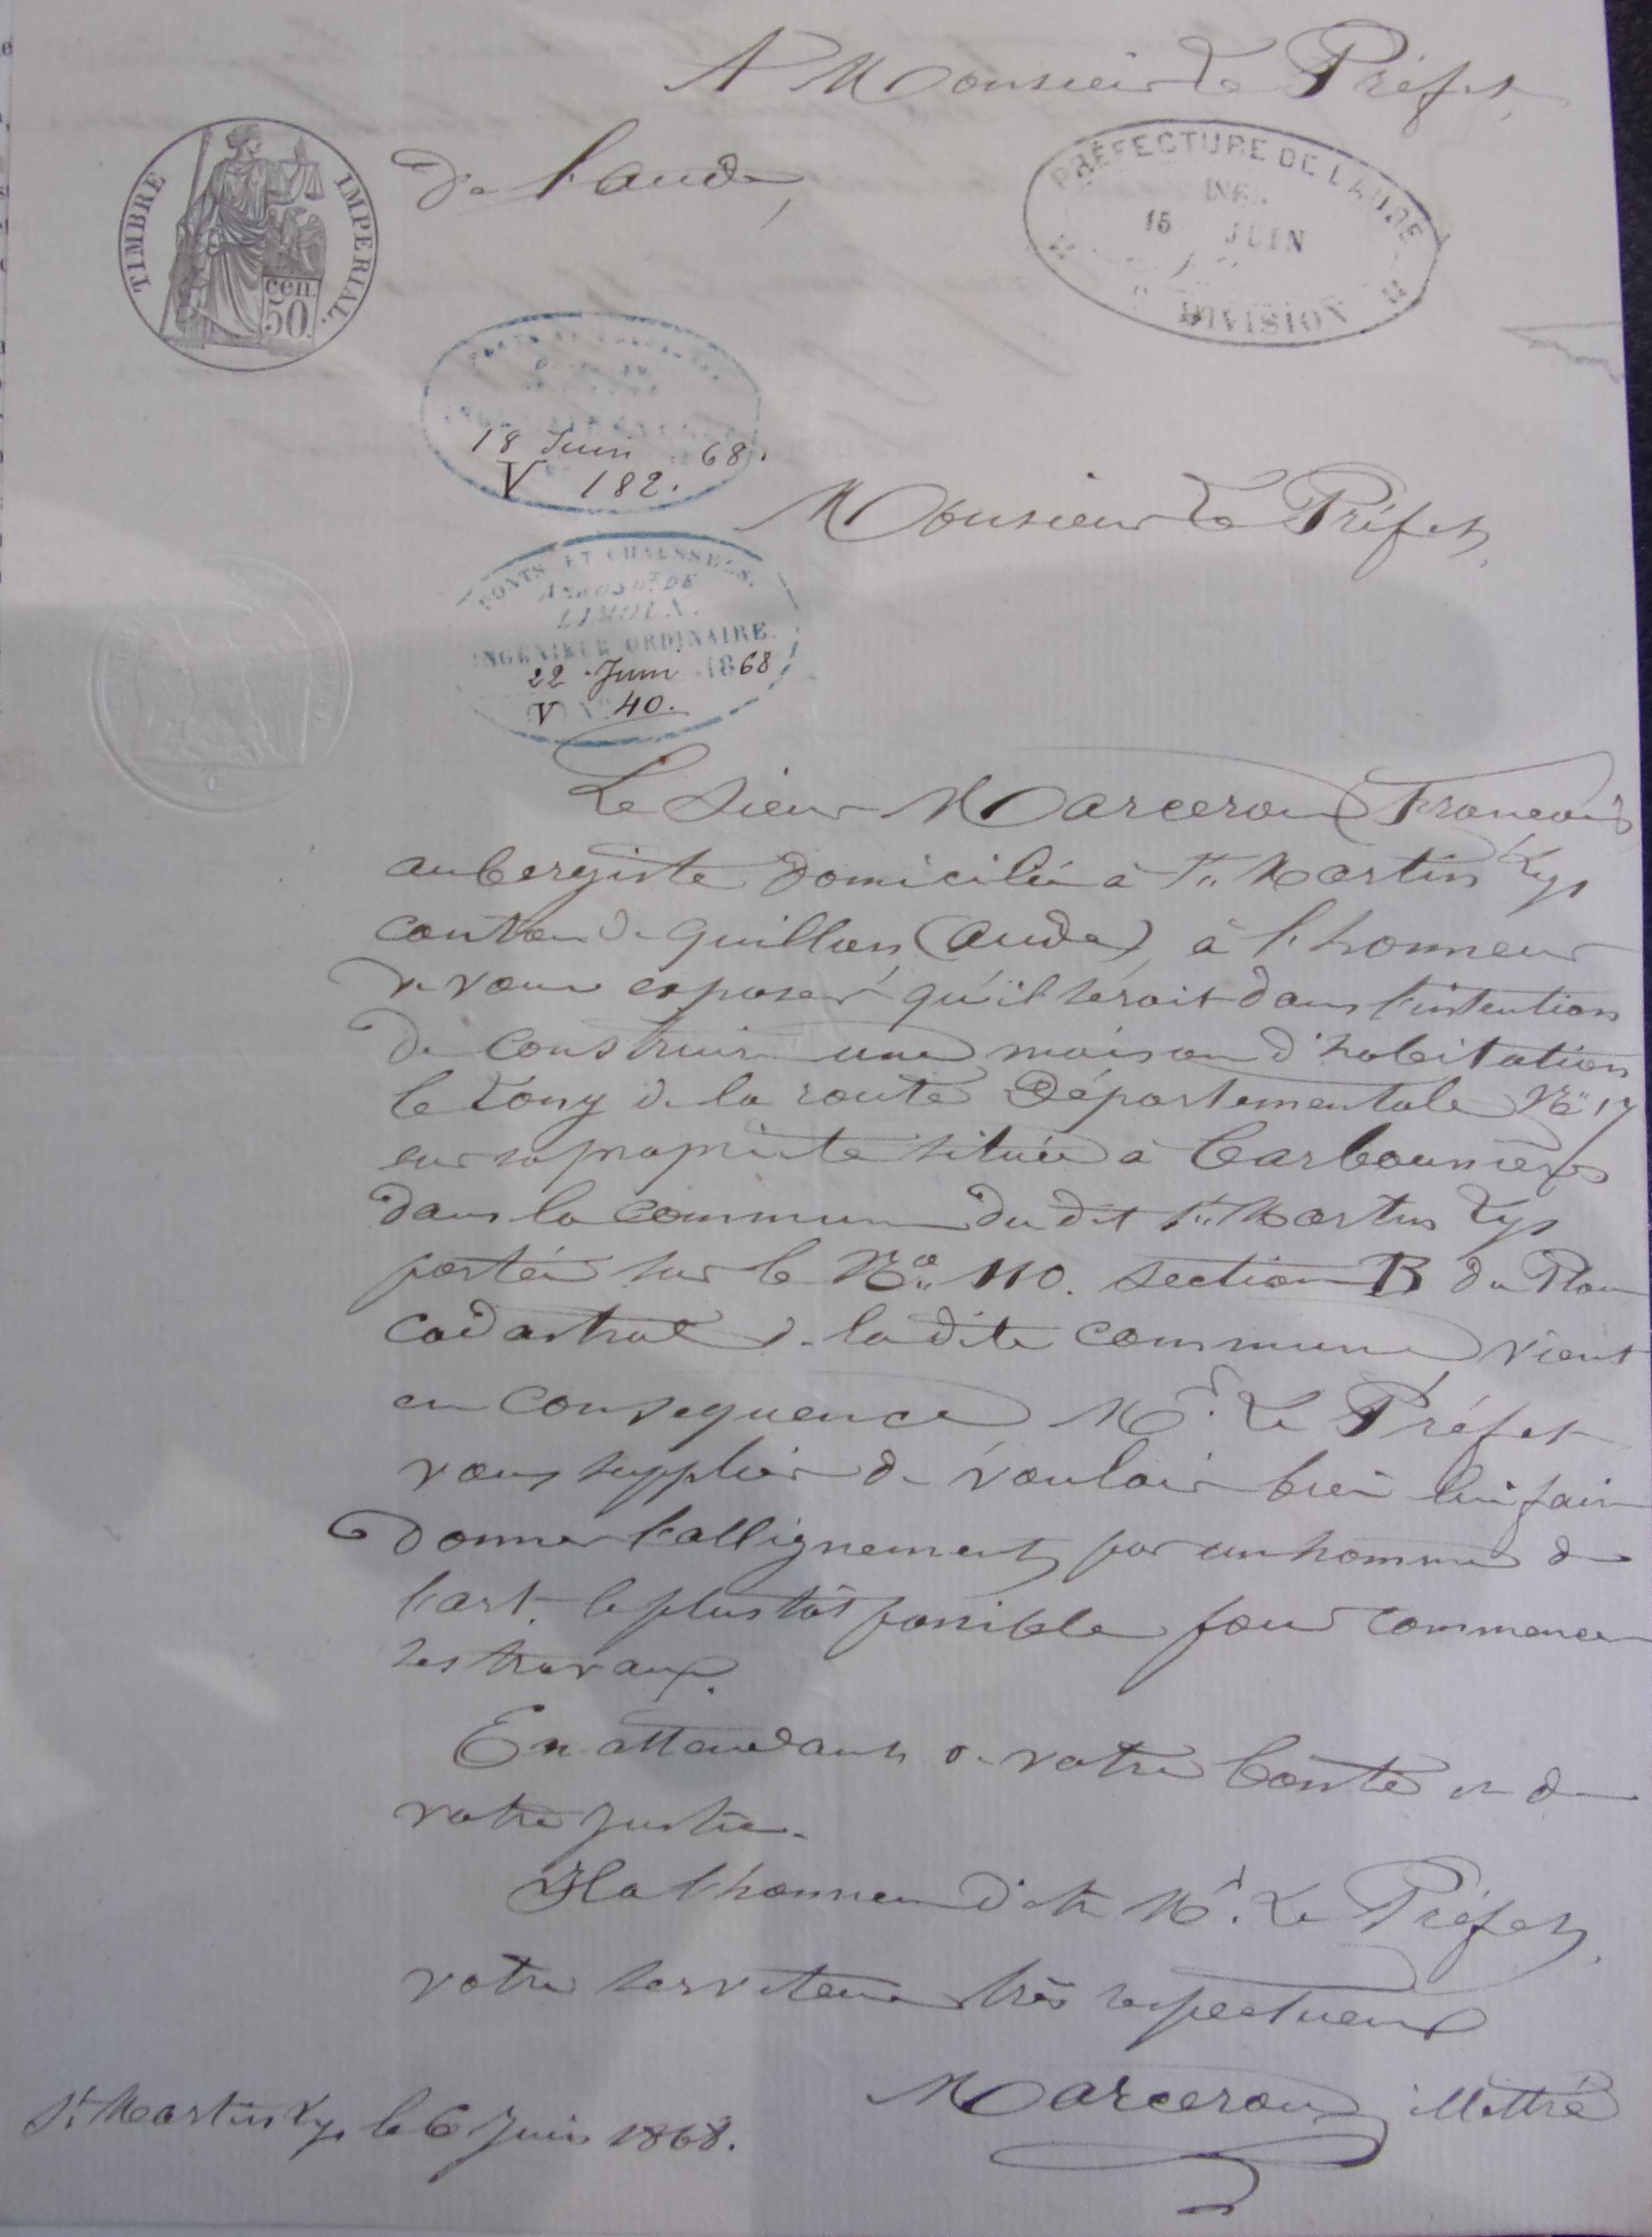 A Monsieur Le Préfet
de l'aude,
TIMBRE IMPERIAL.
cen.
50.
PRÉFECTURE DE L'AUDE
15 JUIN
DIVISION
18 Juin 68.
V 182.
Monsieur Le Préfet,
PONTS ET CHAUSSÉES.
ARRONDt. DE
LIMOUX.
INGÉNIEUR ORDINAIRE.
22 Juin 1868
V N° 40.
Le Sieur Marcerou François
aubergiste domicilié à St. Martin Lys
canton de quillan (aude) à l'honneur
de vous exposer qu'il sérait dans l'intention
de construire une maison d'habitation
le Long de la route Départementale No. 17
sur sa propriete située à Carbounières
dans la commune du dit St. Martin Lys
portée sur le No. 110. section B du Plan
cadastral de la dite commune vient
en consequence Mr. Le Préfet
vous supplier de vouloir bien lui faire
donner l'allignement par un homme de
l'art. le plus tôt possible pour commencer
ses travaux.
En attendant de votre bonté et de
votre justice.
Il a l'honneur d'etre Mr. Le Préfet,
votre serviteur très respectueux
Marcerou illettré
St. Martin Lys le 6 Juin 1868.